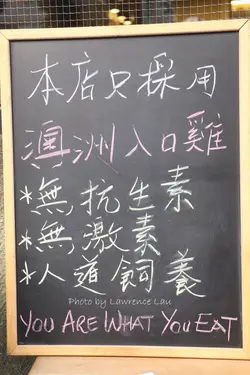 本店只採用
澳洲入口雞
*無抗生素
*無激素
*人道飼養
Photo by Lawrence Lau
YOU ARE WHAT YOU EAT